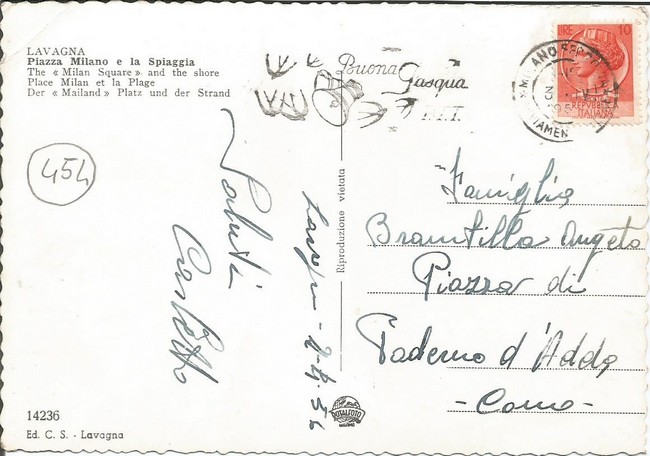 LAVAGNA
Piazza Milano e la Spiaggia
The « Milan Square » and the shore
Place Milan et la Plage
Der « Mailand » Platz und der Strand
454
Saluti
14236
Ed. C. S. - Lavagna
Riproduzione vietata
ROTALFOTO
MILANO
Buona
Pasqua
P.T.T.
MILANO
LIRE 10
REPUBBLICA
ITALIANA
Famiglia
Brambilla Angelo
Piazza di
Paderno d'Adda
- Como -